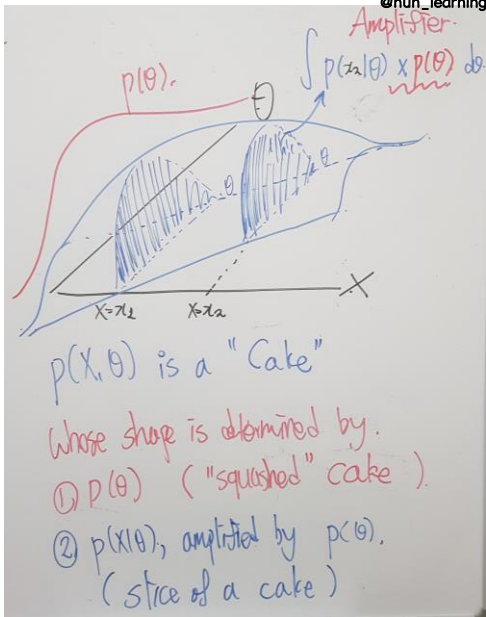 @nun_learning
Amplifier.
∫ p(x₂|θ) × p(θ) dθ
p(θ).
θ
θ
θ
X=x₁
X=x₂
X
p(X,θ) is a "Cake"
Whose shape is determined by.
① p(θ) ("squashed" cake).
② p(X|θ), amplified by p(θ).
(slice of a cake)